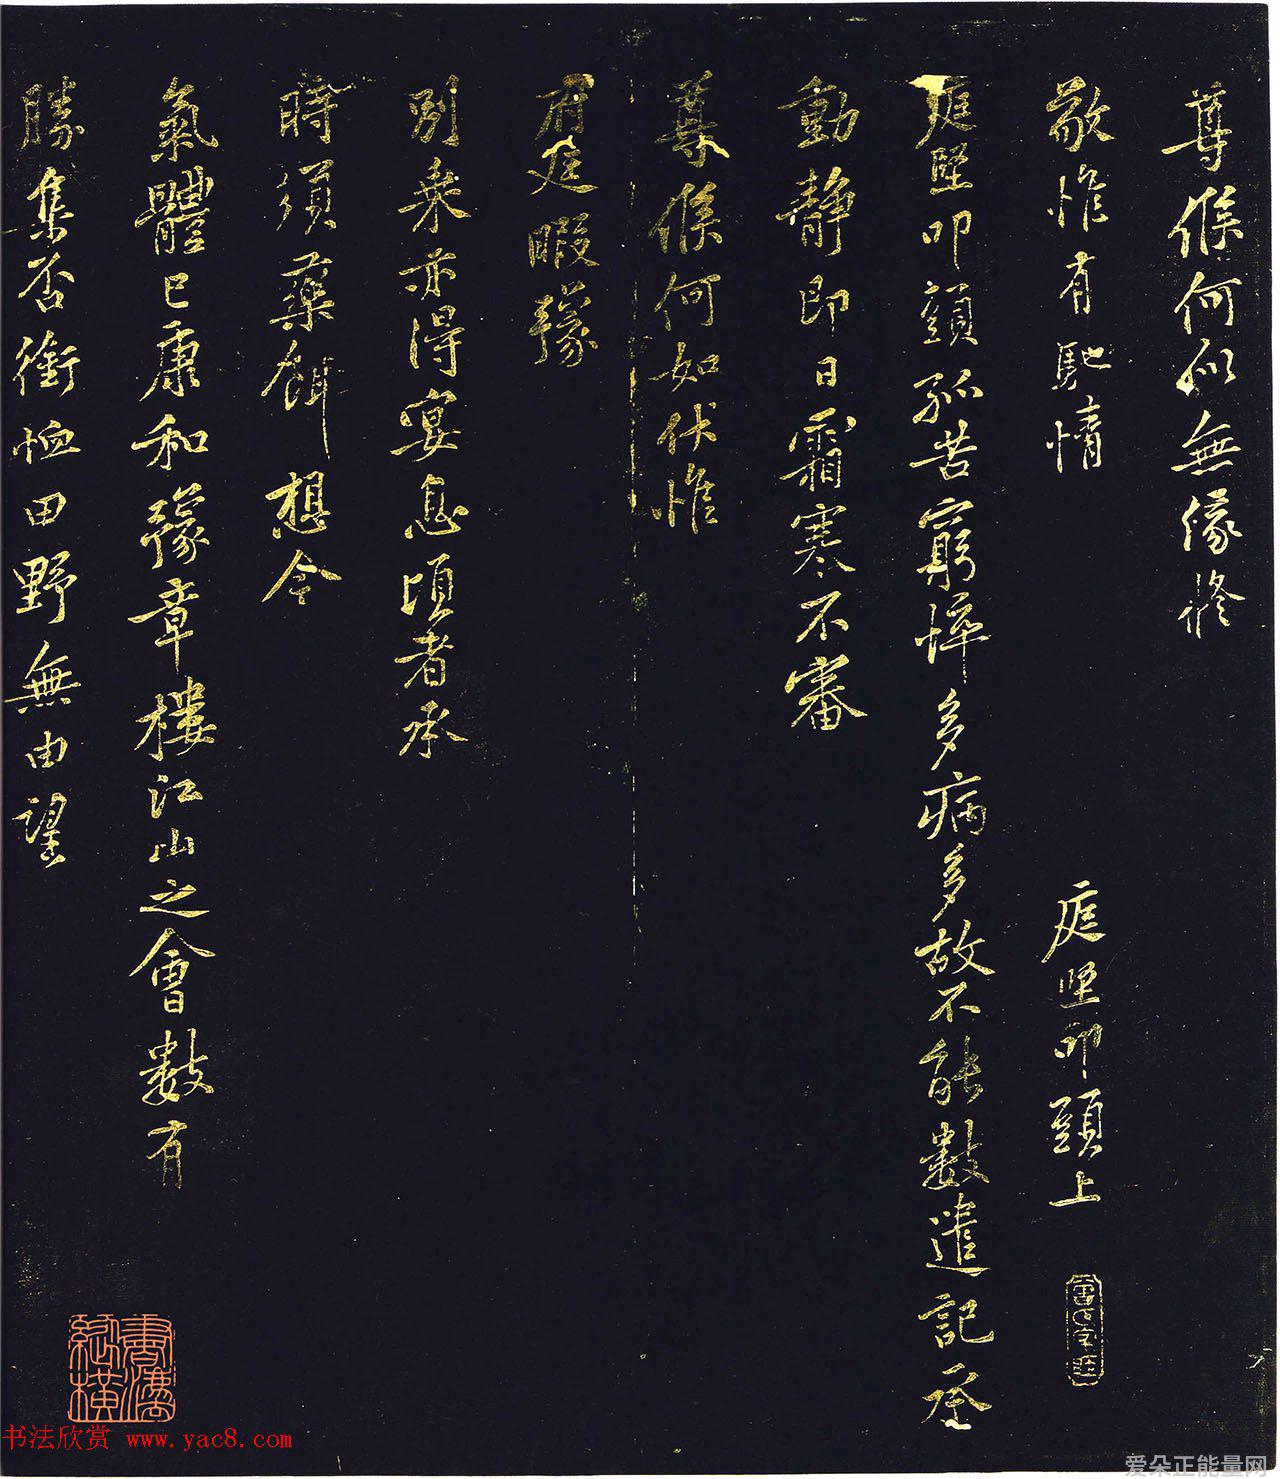 尊候何似無緣修
敬惟有馳情 庭堅叩頭上
庭堅叩頭孤苦窮悴多病多故不能數遣記承
動靜即日霜寒不審
尊候何如伏惟
府廷暇豫
別乘亦得宴息頃者承
時須藥餌想今
氣體已康和豫章樓江山之會數有
勝集否銜恤田野無由望
书法欣赏 www.yac8.com
爱朵正能量网